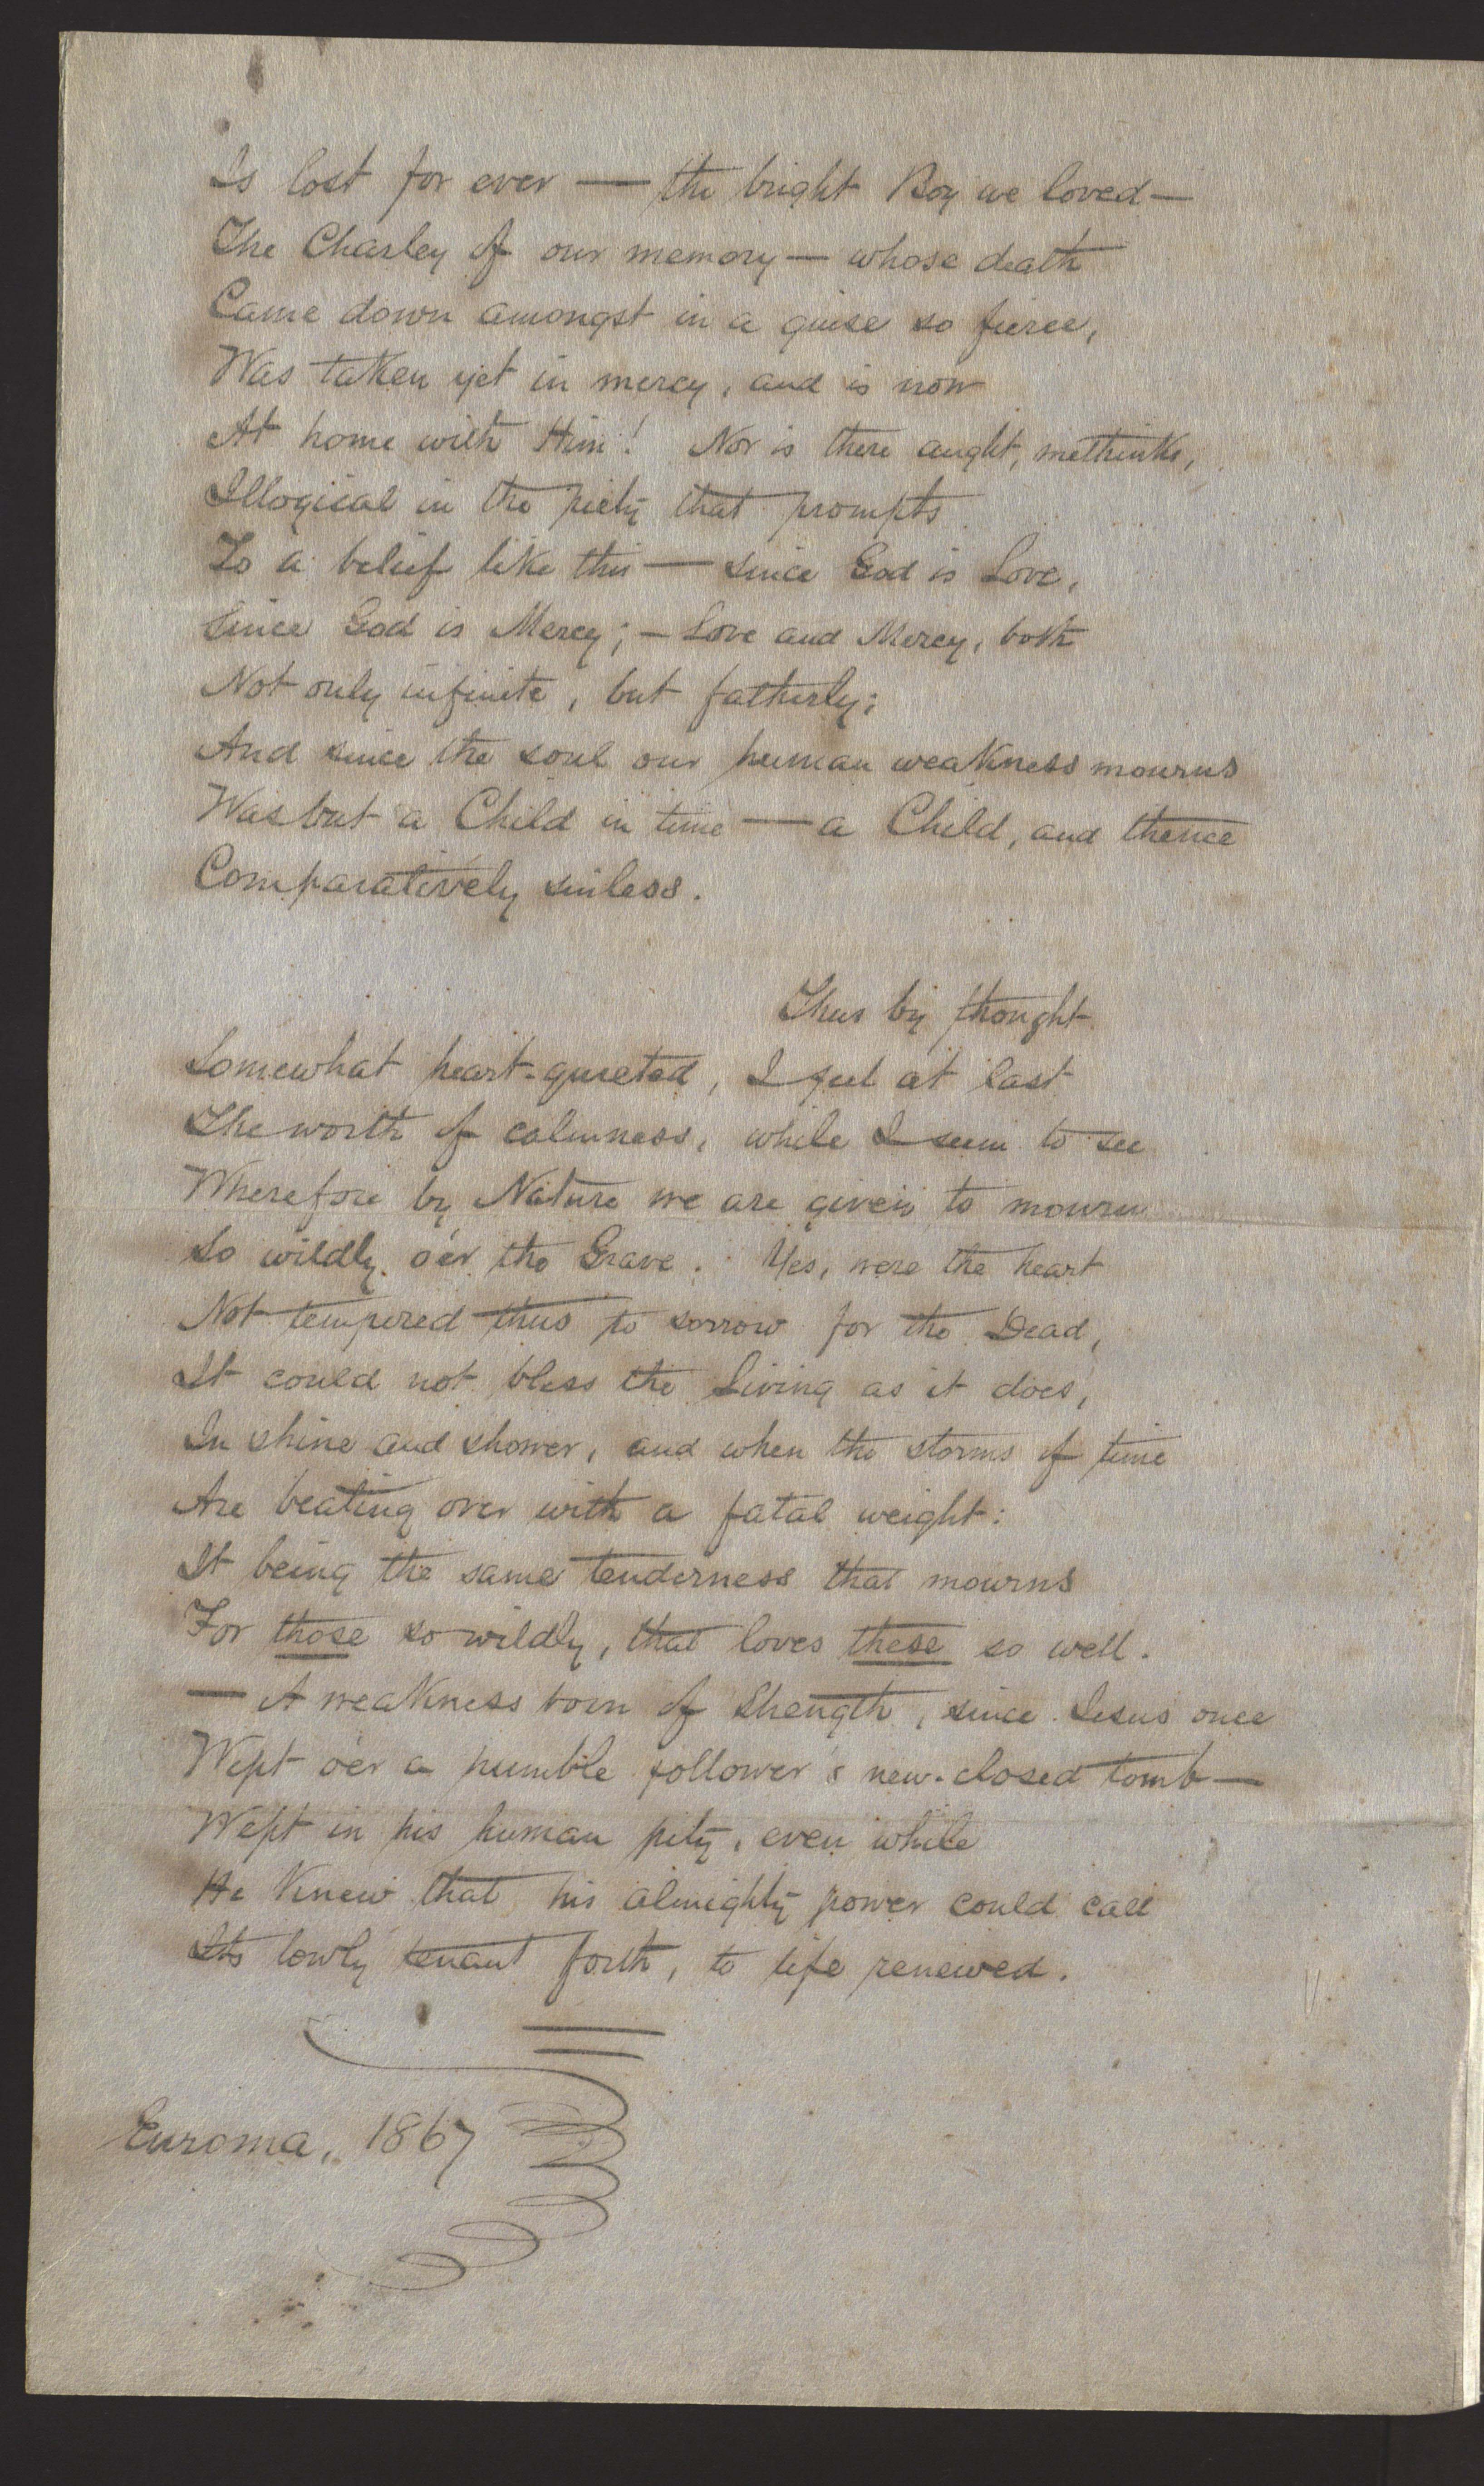 Is lost for ever — the bright Boy we loved —
The Charley of our memory — whose death
Came down amongst in a guise so fierce,
Was taken yet in mercy, and is now
At home with Him! Nor is there aught, methinks,
Illogical in the piety that prompts
To a belief like this — since God is Love,
Since God is Mercy; — Love and Mercy, both
Not only infinite, but fatherly;
And since the soul our human weakness mourns
Was but a Child in time — a Child, and thence
Comparatively sinless.
Thus by thought
Somewhat heart-quieted, I feel at last
The worth of calmness, while I seem to see
Wherefore by Nature we are given to mourn
So wildly o'er the Grave. Yes, were the heart
Not tempered thus to sorrow for the Dead,
It could not bless the Living as it does,
In shine and shower, and when the storms of time
Are beating over with a fatal weight:
It being the same tenderness that mourns
For those so wildly, that loves these so well.
— A weakness born of Strength, since Jesus once
Wept o'er a humble follower's new-closed tomb —
Wept in his human pity, even while
He Knew that his almighty power could call
Its lowly tenant forth, to life renewed.
Euroma, 1867